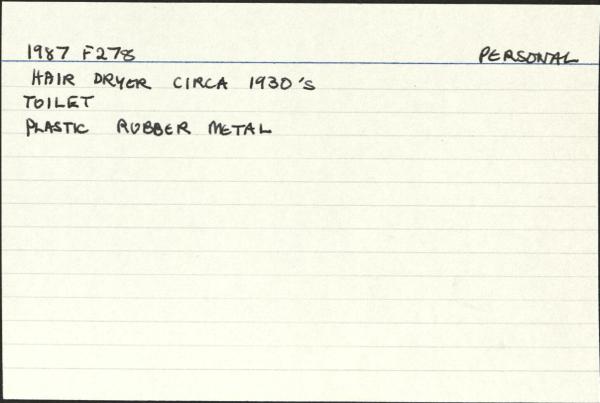 1987 F278 PERSONAL
HAIR DRYER CIRCA 1930's
TOILET
PLASTIC RUBBER METAL